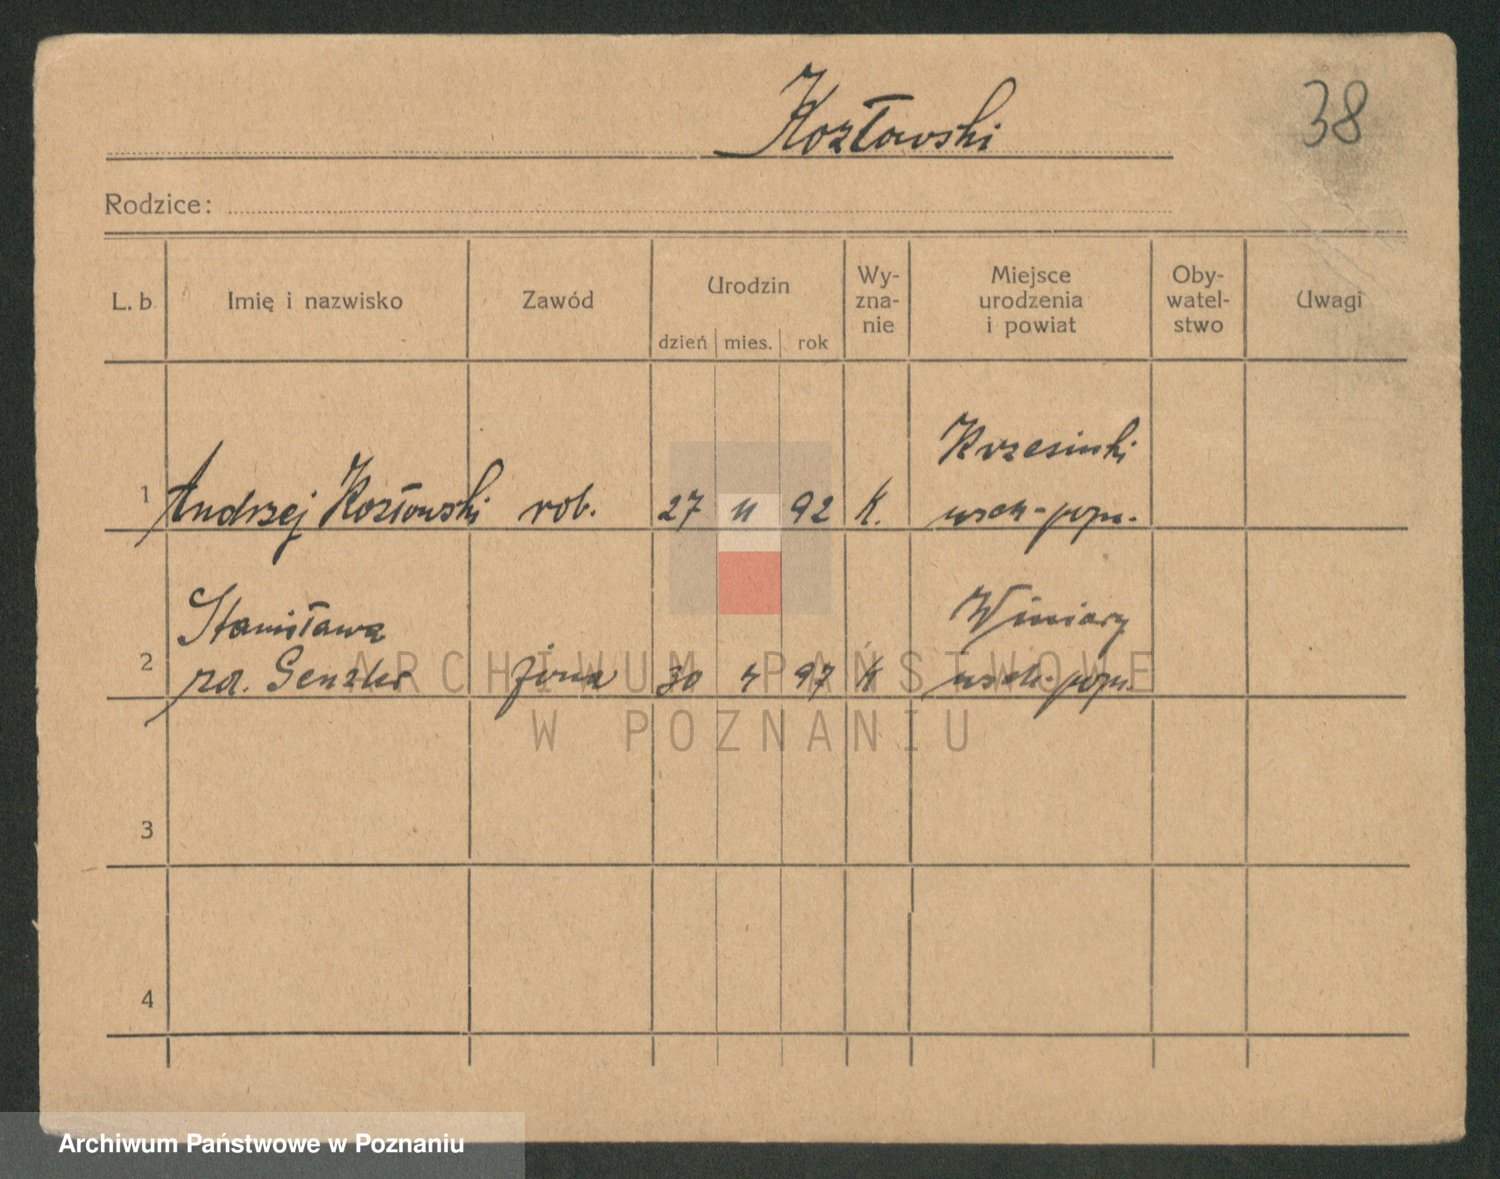 Kozłowski
38
Rodzice:
L. b.
Imię i nazwisko
Zawód
Urodzin
dzień mies. rok
Wy-
zna-
nie
Miejsce
urodzenia
i powiat
Oby-
watel-
stwo
Uwagi
Krzesinki
1 Andrzej Kozłowski rob. 27 11 92 K.
Stanisława Winiary
2 żona 30 4 97 K
3
4
ARCHIWUM PAŃSTWOWE
W POZNANIU
Archiwum Państwowe w Poznaniu